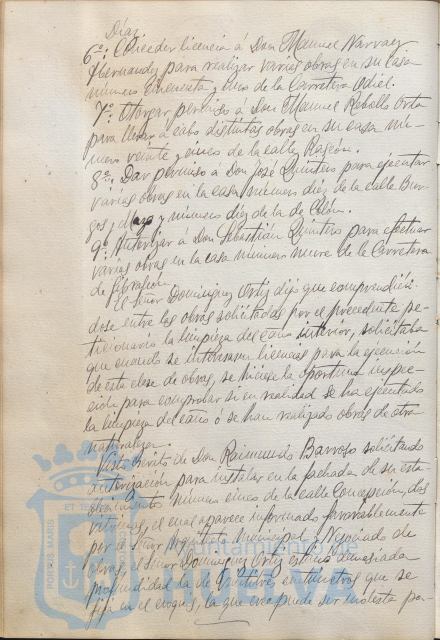 Díaz
6º: Conceder licencia á Don Manuel Narvaez
Hernandez para realizar varias obras en su casa
número cincuenta y cinco de la Carretera Odiel.
7º: Otorgar permiso á Don Manuel Rebollo Orta
para llevar á cabo distintas obras en su casa nú-
mero veinte y cinco de la calle Rascón.
8º: Dar permiso á Don José Quintero para ejecutar
varias obras en la casa número diez de la calle Bur-
gos y Mazo y número diez de la de Colón.
9º: Autorizar á Don Sebastián Quintero para efectuar
varias obras en la casa número nueve de la Carretera
de Gibraleón.
El Señor Dominguez Ortiz dijo que comprendién-
dose entre las obras solicitadas por el precedente pe-
ticionario la limpieza del caño interior, solicitaba
que cuando se interesaran licencias para la ejecución
de esta clase de obras, se hiciese la oportuna inspec-
ción para comprobar si en realidad se ha ejecutado
la limpieza del caño ó se han realizado obras de otra
naturaleza.
Visto escrito de Don Raimundo Barroso solicitando
autorización para instalar en la fachada de su esta-
blecimiento número cinco de la calle Concepción, dos
vitrinas, el cual aparece informado favorablemente
por el Señor Arquitecto Municipal y Negociado de
obras, el Señor Dominguez Ortiz estimó demasiada
profundidad la de centímetros que se
fija en el croquis, la que cree puede ser molesta pa-
PORTUS MARIS
ET TE
Ayuntamiento de
HUELVA